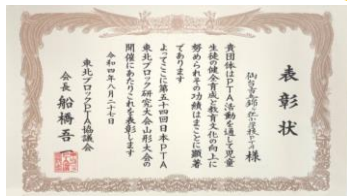 表彰状
様
貴団体はPTA活動を通して児童
生徒の健全育成と教育文化の向上に
努められその功績はまことに顕著
であります
よってここに第五十四回日本PTA
東北ブロック研究大会山形大会の
開催にあたりこれを表彰します
令和四年八月二十七日
東北ブロックPTA協議会
会長 船橋吾一